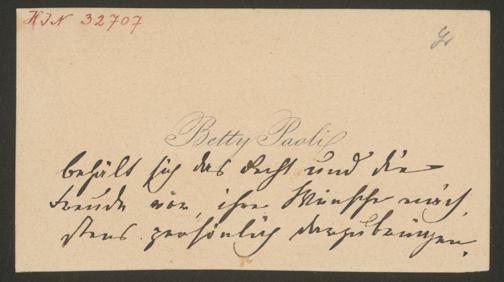 HIN 32707
Betty Paoli
behält sich das Recht und die
Freude vor, ihre Wünsche näch
stens persönlich darzubringen.